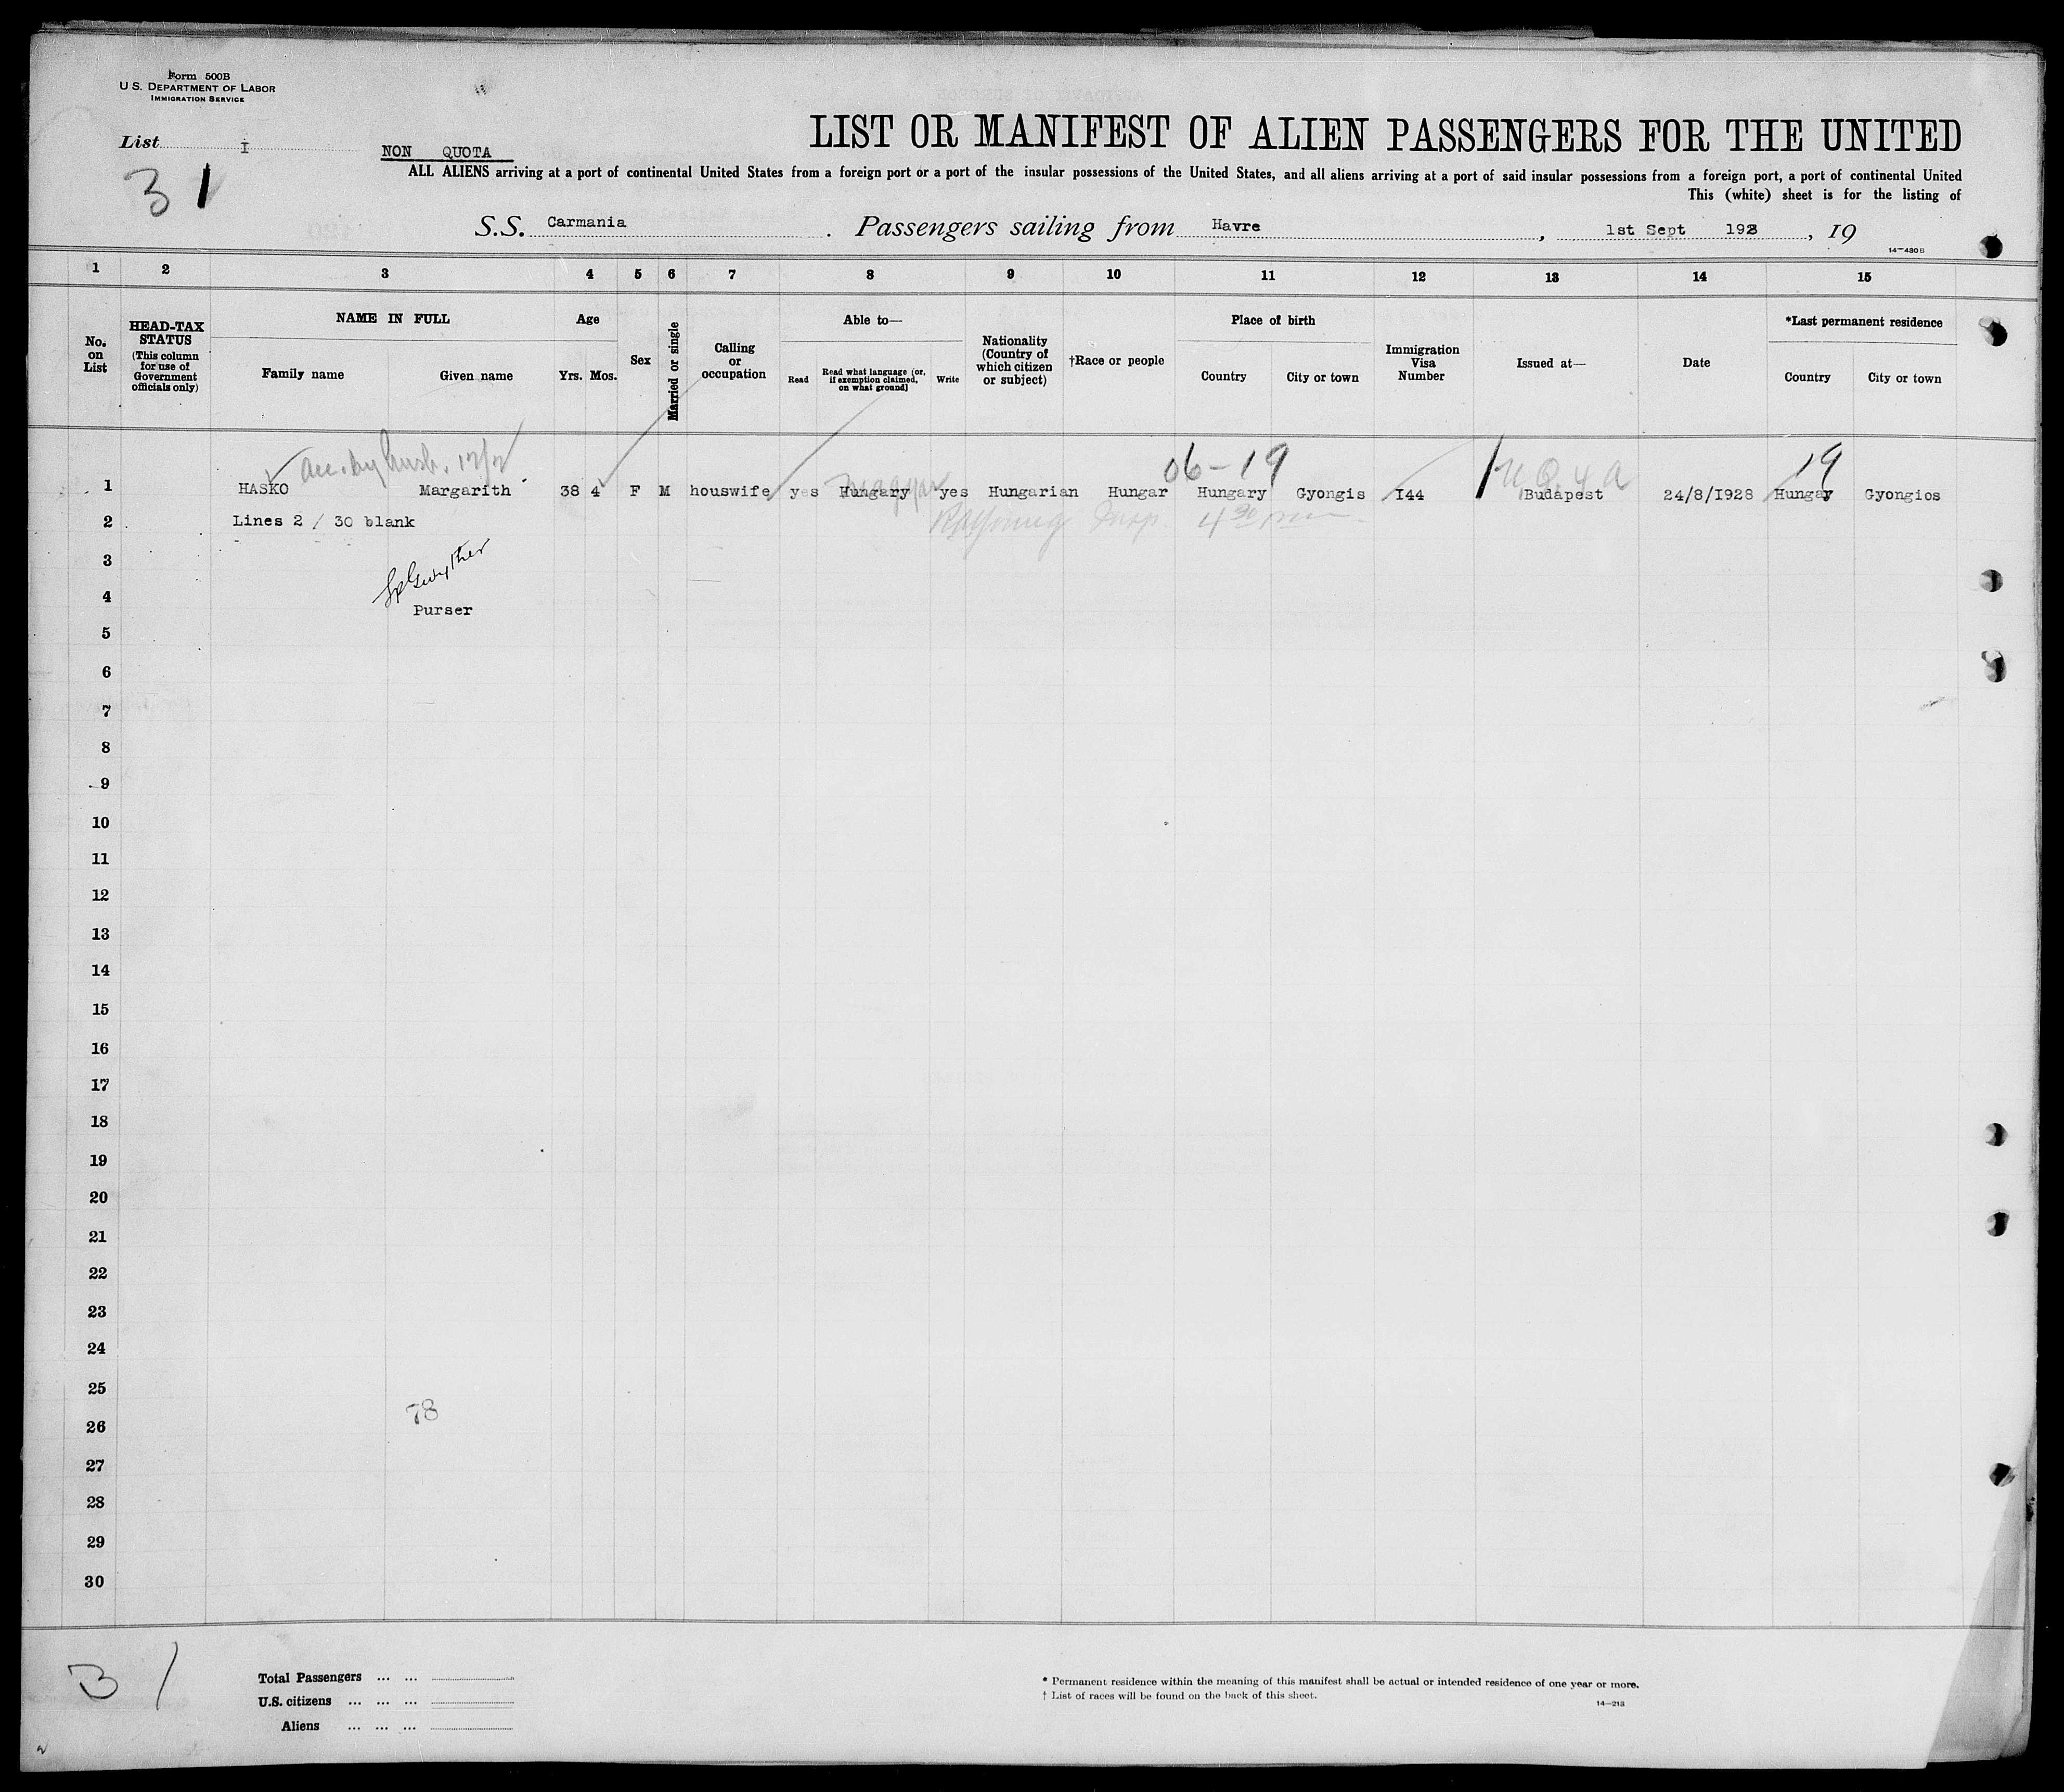 Form 500B
U.S. DEPARTMENT OF LABOR
IMMIGRATION SERVICE
List I
NON QUOTA
3 1
LIST OR MANIFEST OF ALIEN PASSENGERS FOR THE UNITED
ALL ALIENS arriving at a port of continental United States from a foreign port or a port of the insular possessions of the United States, and all aliens arriving at a port of said insular possessions from a foreign port, a port of continental United
This (white) sheet is for the listing of
S.S. Carmania . Passengers sailing from Havre , 1st Sept 1928 , 19
14—430B
1 2 3 4 5 6 7 8 9 10 11 12 13 14 15
No. on List
HEAD-TAX STATUS
(This column for use of Government officials only)
NAME IN FULL
Family name Given name
Age
Yrs. Mos.
Sex
Married or single
Calling or occupation
Able to—
Read
Read what language [or, if exemption claimed, on what ground]
Write
Nationality (Country of which citizen or subject)
†Race or people
Place of birth
Country City or town
Immigration Visa Number
Issued at—
Date
*Last permanent residence
Country City or town
acc. by husb. 06-19 19
1 HASKO Margarith 38 4 F M houswife yes Hungary Magyar yes Hungarian Hungar Hungary Gyongis I44 Budapest 24/8/1928 Hungay Gyongios
2 Lines 2 / 30 blank Insp. 4 30 pm
3
4
Purser
5
6
7
8
9
10
11
12
13
14
15
16
17
18
19
20
21
22
23
24
25
78
26
27
28
29
30
3 1
Total Passengers ... ...
U.S. citizens ... ... ...
Aliens ... ... ...
* Permanent residence within the meaning of this manifest shall be actual or intended residence of one year or more.
† List of races will be found on the back of this sheet.
14—213